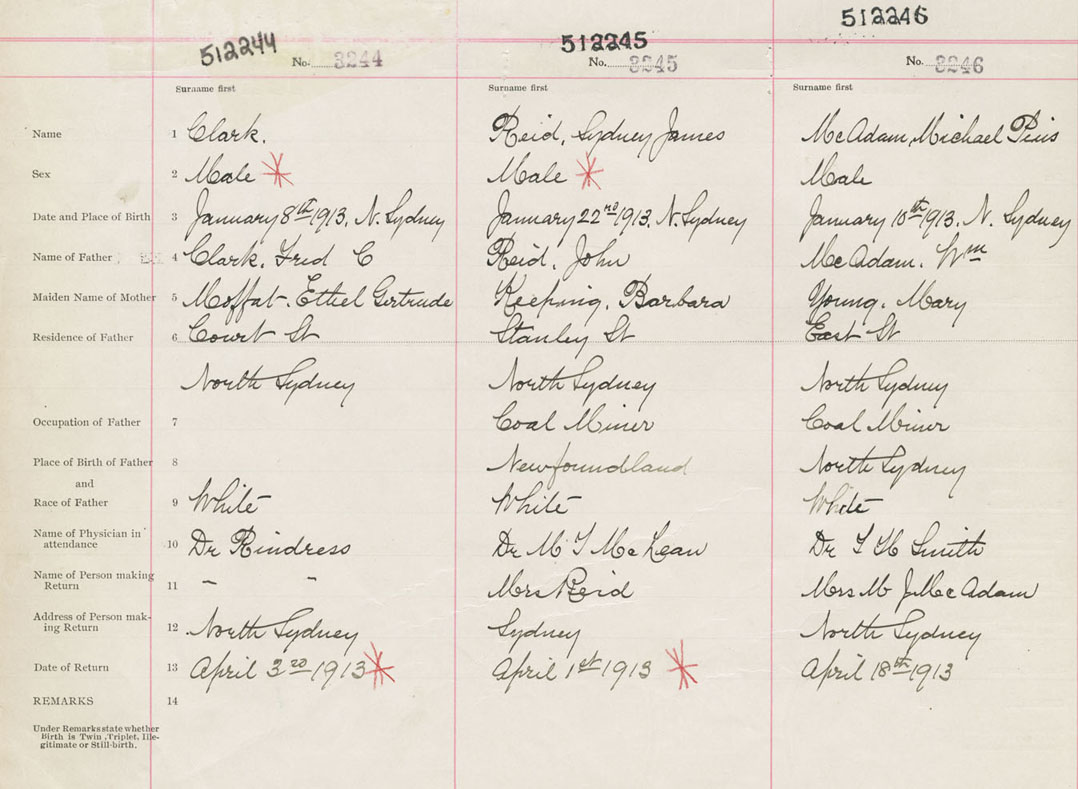 512244 512245 512246
No. 3244 No. 3245 No. 3246
Surname first Surname first Surname first
Name 1 Clark. Reid, Sydney James McAdam, Michael Pius
Sex 2 Male Male Male
Date and Place of Birth 3 January 8th 1913. N. Sydney January 22nd 1913. N. Sydney January 10th 1913. N. Sydney
Name of Father 4 Clark. Fred C Reid. John McAdam. Wm
Maiden Name of Mother 5 Moffat. Ethel Gertrude Keeping. Barbara Young. Mary
Residence of Father 6 Court St Stanley St East St
North Sydney North Sydney North Sydney
Occupation of Father 7 Coal Miner Coal Miner
Place of Birth of Father 8 Newfoundland North Sydney
and
Race of Father 9 White White White
Name of Physician in attendance 10 Dr Rindress Dr M T McLean Dr T H Smith
Name of Person making Return 11 " " Mrs Reid Mrs M J McAdam
Address of Person mak-ing Return 12 North Sydney Sydney North Sydney
Date of Return 13 April 3rd 1913 April 1st 1913 April 18th 1913
REMARKS 14
Under Remarks state whether
Birth is Twin, Triplet, Ille-
gitimate or Still-birth.